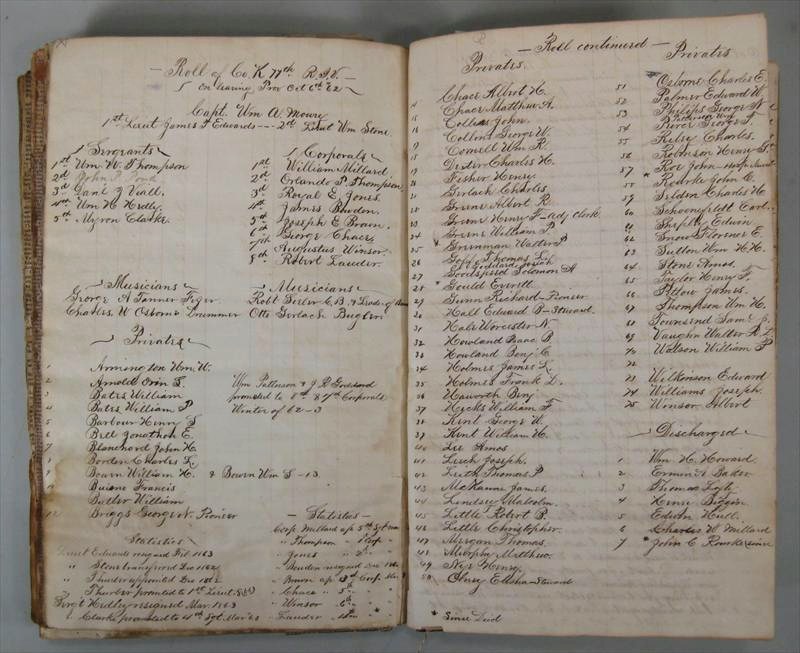 — Roll of Co. K 11th R.I.V. —
On leaving Prov Oct 6th 62
Capt. Wm A. Moury
1st Lieut James T Edwards --- 2nd Lieut Wm Stone
Sergeants
1st Wm W. Thompson
2nd John P. Pond
3rd Danl G Viall.
4th Wm H Hedly.
5th Myron Clarke.
Corporals
1st William Millard.
2nd Orlando P. Thompson
3rd Royal E. Jones.
4th James Bowden.
5th Joseph E Brown.
6th George Chace.
7th Augustus Winsor.
8th Robert Lauder.
Musicians
George A Tanner Fifer
Charles W Osborne Drummer
Musicians
Robt Seiler E.B. & Leader of
Otto Gerlach Bugler
Privates
1 Armington Wm W.
2 Arnold Orin T.
3 Bates William
4 Bates William P
5 Barbour Henry S
6 Bell Jonathan E.
7 Blanchard John H.
8 Borden Charles F.
9 Bourn William H. & Bourn Wm S - 13.
10 Francis
Butler William
12 Briggs George N. Pioneer
Wm Patterson & J. R Goddard
promoted to 8th & 7th Corporals
Winter of 62-3
Statistics
Lieut Edwards resigned Feb 1863
" Stone transferred Dec 1862
" Thurber appointed Dec 1862
" Thurber promoted to 1st Lieut. 1863
Serg't Hedley resigned Mar. 1863
" Clarke promoted to 4th Sgt. Mar 63
— Statistics —
Corp Millard ap 5th Sgt
" Thompson " 1st Corp "
" Jones " 2nd "
" Bowden resigned Dec 1862
" Brown ap 3rd Corp
" Chace " 5th "
" Winsor " 6th "
" Lauder " 4th "
— Roll continued —
Privates
Chace Albert H.
Chace Matthew A.
Collins John.
Collins George W.
Cornell Wm R.
Dexter Charles H.
Fisher Henry.
Gerlach Charles
Greene Albert R.
Greene Henry F — Adj. Clerk
24 Greene William P
25 * Grenman Walter P
26 Goff Thomas L.
Goddard Josiah
27 Goodspeed Solomon A
28 * Gould Everett
29 Gunn Richard - Pioneer
30 Hall Edward B - Steward
31 Hale Worcester N
32 Howland Isaac B
33 Howland Benj C
34 Holmes James L.
35 Holmes Frank L.
36 Haworth Benj
37 Hicks William F
38 Kent George W.
39 Kent William H.
40 Lee Amos
41 Leach Joseph.
42 Leith Thomas P
43 McKanna James.
44 Lindsey Malcolm.
45 Little Robert P.
46 Little Christopher.
47 Morgan Thomas.
48 Murphy Matthew.
49 Nye Henry.
50 Olney Elisha - Steward
* Since Died
Privates
51 Osborne Charles E.
52 Palmer Edward W.
53 Philips George N
Patterson Wm
54 Pierce George F.
55 Kelsey Charles.
56 Robinson Henry G.
57 Roe John
58 * Rourke John C.
59 Selden Charles H
60 Schoenfeldt Carl.
61 Sheplie Edwin
62 Snow Florner E.
63 Sutton Wm H. H.
64 Stone Amos.
65 Taylor Henry F.
66 Pillow James.
67 Thompson Wm H.
68 Townsend Saml J.
69 Vaughn Walter A. L.
70 Watson William P
72
73 Wilkinson Edward
74 Williams Joseph.
75 Winsor Albert
Discharged
1 Wm H. Howard
2 Ermin A Baker
3 Thomas Lyle
4 Henry
5 Edwin Hull.
6 Charles W Millard
7 * John C Rourke since